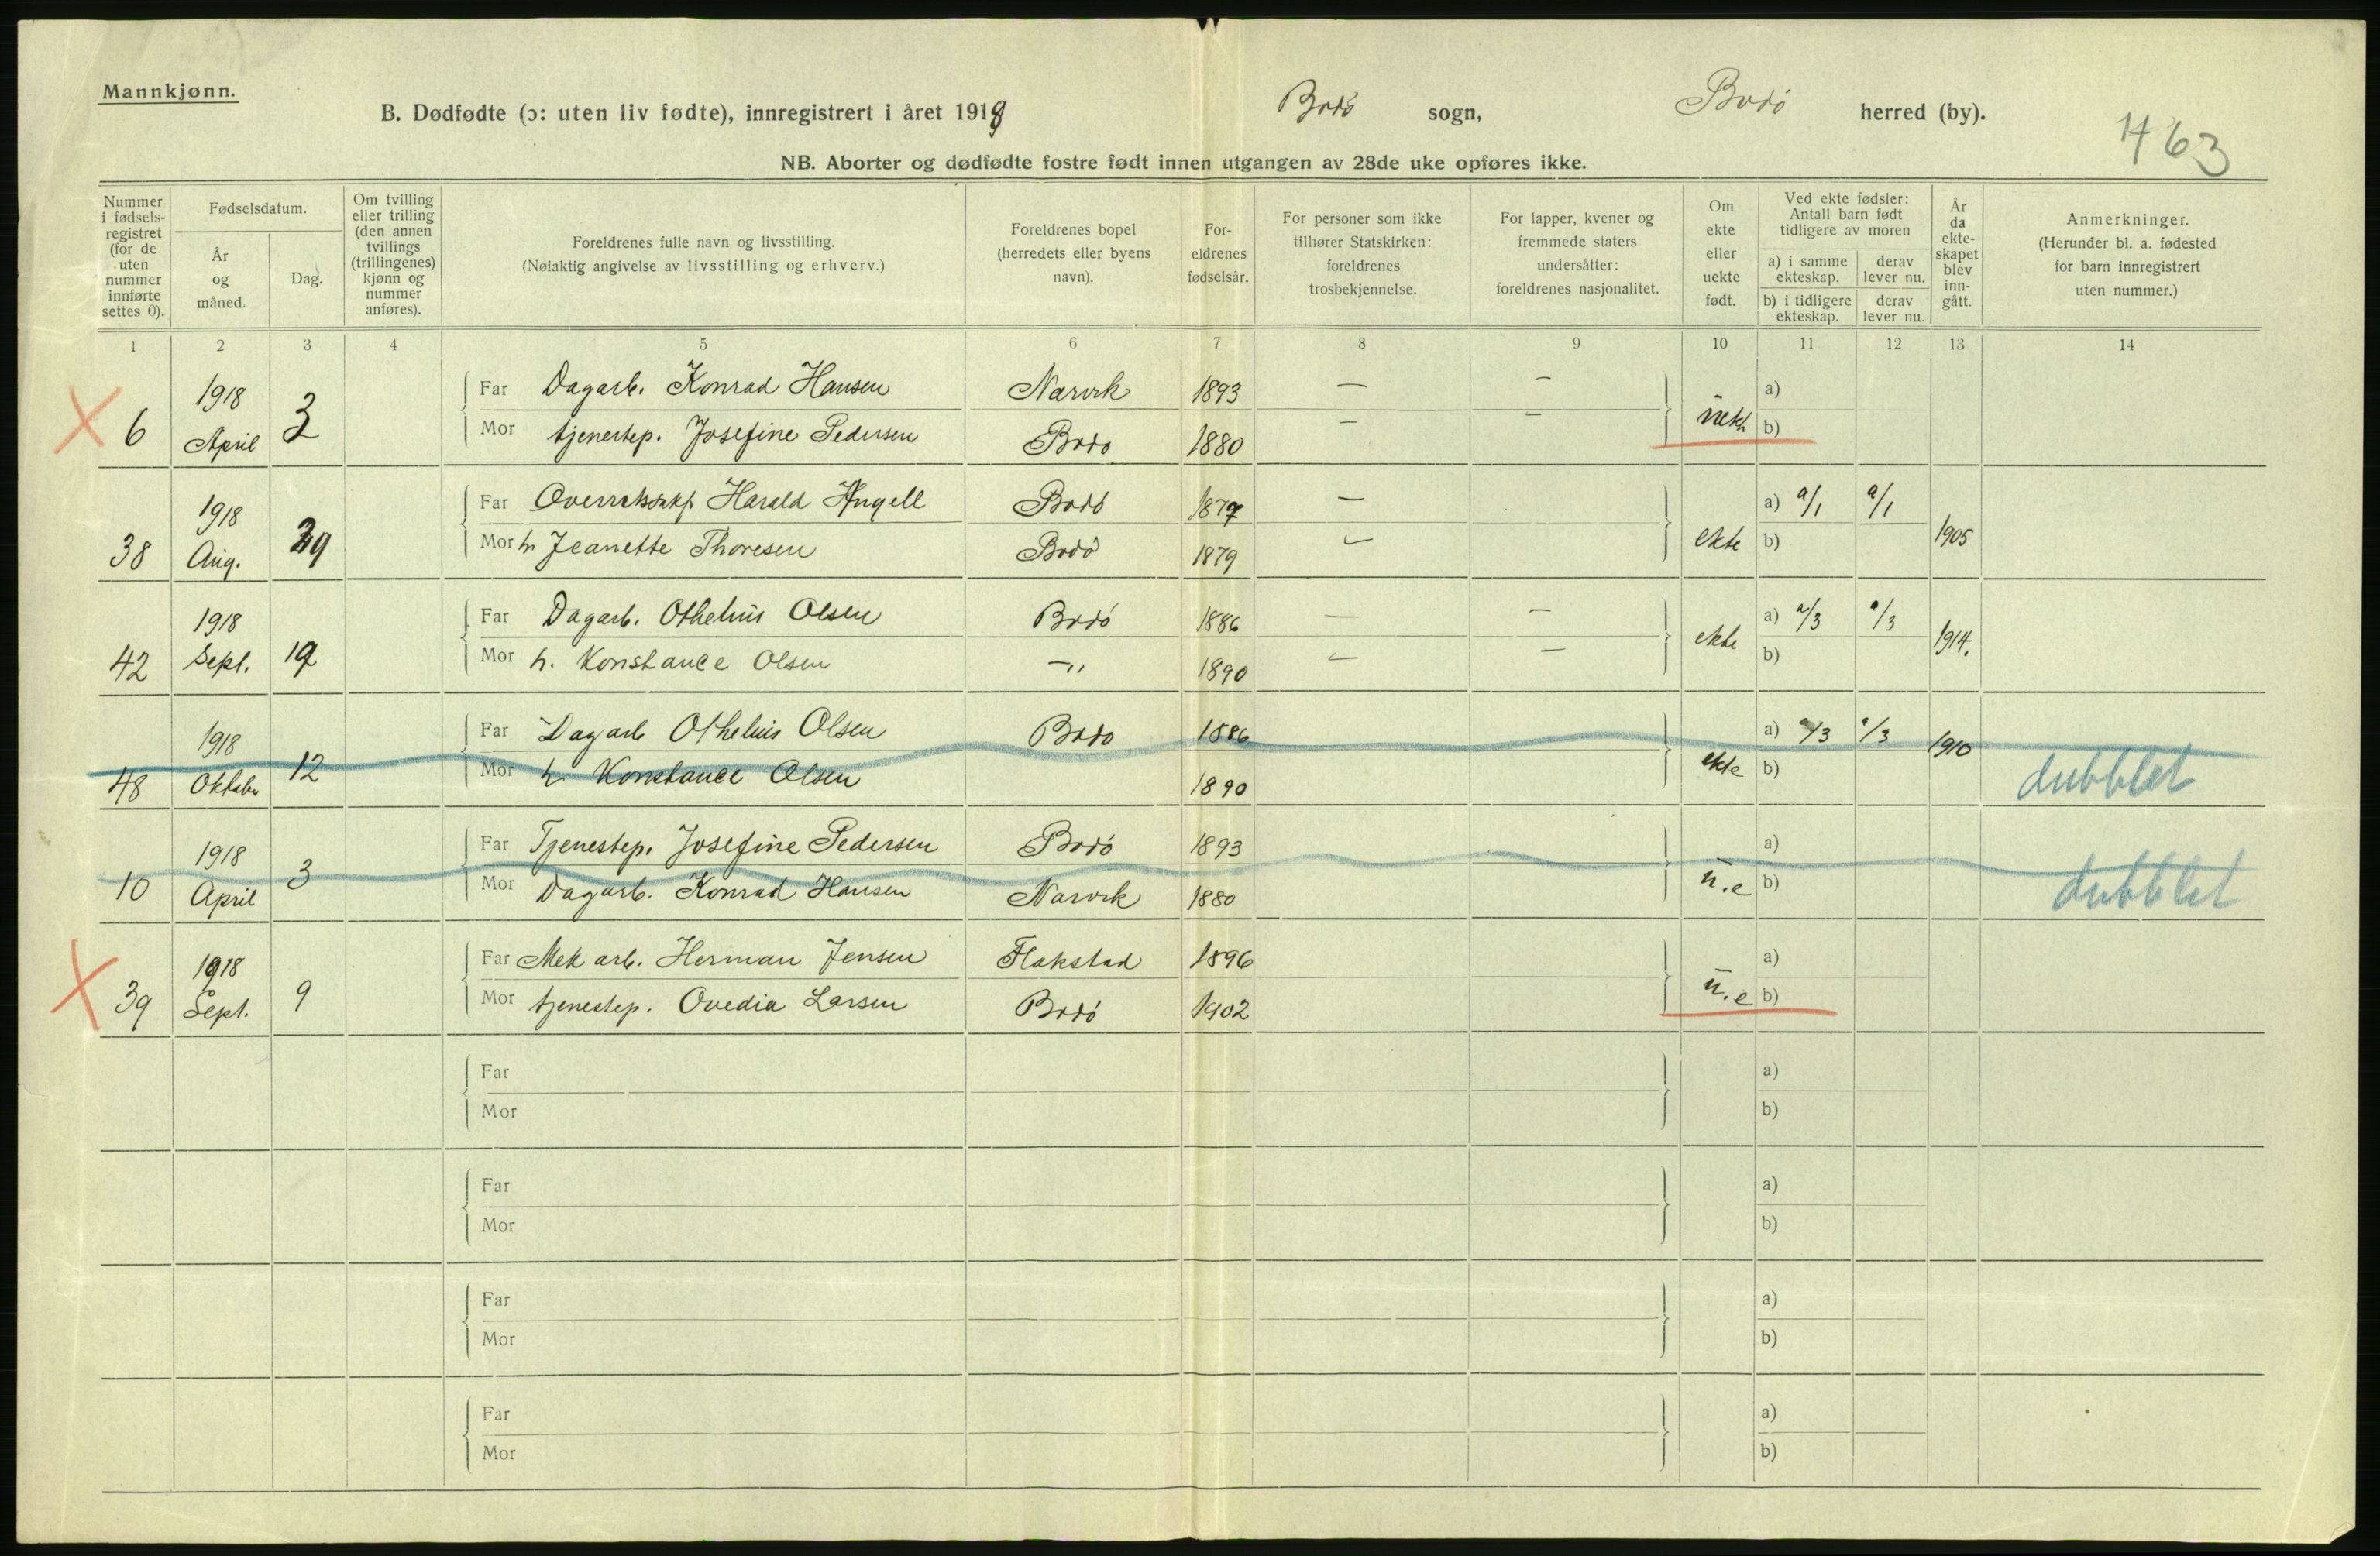 Mannkjønn.
B. Dødfødte (ɔ: uten liv fødte), innregistrert i året 1918 Bodø sogn, Bodø herred (by).
463
NB. Aborter og dødfødte fostre født innen utgangen av 28de uke opføres ikke.
Nummer i fødsels-registret (for de uten nummer innførte settes 0).
Fødselsdatum.
År og måned.
Dag.
Om tvilling eller trilling (den annen tvillings (trillingenes) kjønn og nummer anføres).
Foreldrenes fulle navn og livsstilling.
(Nøiaktig angivelse av livsstilling og erhverv.)
Foreldrenes bopel (herredets eller byens navn).
For-eldrenes fødselsår.
For personer som ikke tilhører Statskirken: foreldrenes trosbekjennelse.
For lapper, kvener og fremmede staters undersåtter: foreldrenes nasjonalitet.
Om ekte eller uekte født.
Ved ekte fødsler: Antall barn født tidligere av moren
a) i samme ekteskap.
derav lever nu.
b) i tidligere ekteskap.
derav lever nu.
År da ekte-skapet blev inn-gått.
Anmerkninger.
(Herunder bl. a. fødested for barn innregistrert uten nummer.)
1 2 3 4 5 6 7 8 9 10 11 12 13 14
6 1918 April 3
Far Dagarb. Konrad Hansen Narvik 1893 — — a)
Mor tjenestep. Josefine Pedersen Bodø 1880 — — uekt. b)
38 1918 Aug. 29
Far Harald Angell Bodø 1877 — a) a/1 a/1
Mor h. Jeanette Thoresen Bodø 1879 — ekte b) 1905
42 1918 Sept. 12
Far Dagarb. Othelius Olsen Bodø 1886 — — a) a/3 a/3
Mor h. Konstance Olsen —„ 1890 — — ekte b) 1914.
48 1918 Oktober 12
Far Dagarb Othelius Olsen Bodø 1886 a) a/3 a/3 1910
Mor h. Konstance Olsen 1890 ekte b) dubblet
10 1918 April 3
Far Tjenestep. Josefine Pedersen Bodø 1893 a)
Mor Dagarb. Konrad Hansen Narvik 1880 u.e b) dubblet
39 1918 Sept. 9
Far Mek arb. Herman Jensen Flakstad 1896 a)
Mor tjenestep. Ovedia Larsen Bodø 1902 u.e b)
Far a)
Mor b)
Far a)
Mor b)
Far a)
Mor b)
Far a)
Mor b)